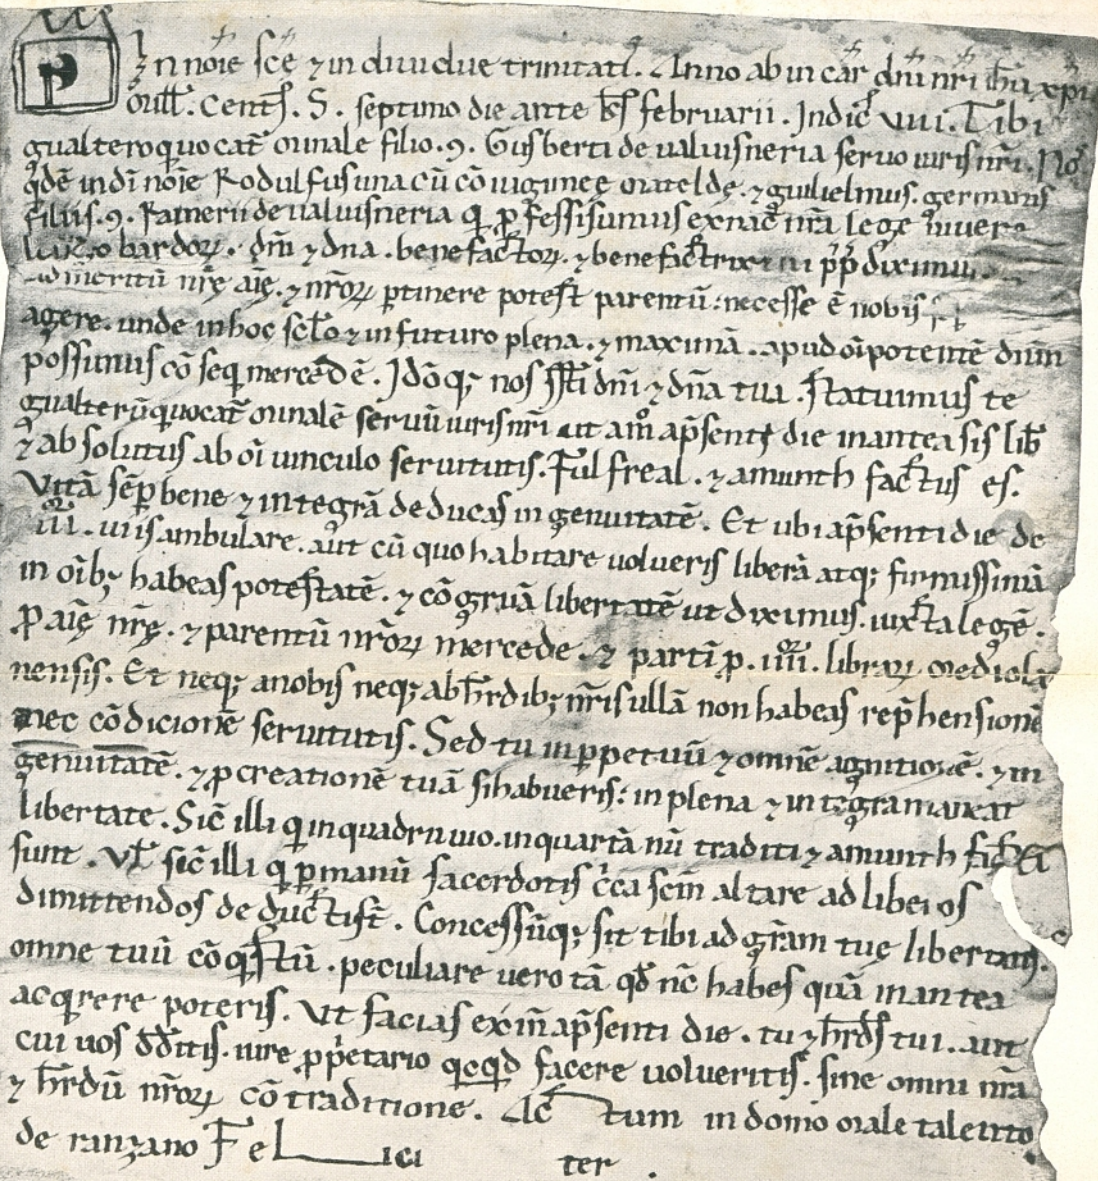 In noīe scē ⁊ indiuidue trinitatī. Anno ab incār dn̄i nr̄i ih̄u xp̄i
oill̄. Cent. S. septimo die ante kl̄ februarii. Indic̄ viii. Tibi
gualtero q uocat̄ oinale filio .9. Gisberti de ualuisneria seruo iuris nr̄i. No
q̄dē in dī noīe Rodulfus una cū cōiugi mee matelde. ⁊ guilielmus. germanis
filiis .9. Ramerii de ualuisneria q̄ p̄fessi sumus ex nac̄ nr̄a lege uiuere
bardoꝝ. dn̄i ⁊ dn̄a. benefactoꝝ. ⁊ benefactrix p̄p̄ diximus
ad meritū nr̄ę aīę. ⁊ nr̄oꝝ ptinere potest parentū: necesse ē nobis
agere. unde in hoc sc̄lo ⁊ in futuro plena. ⁊ maximā. apud oīpotentē dn̄m
possimus cōseq mercedē. Idōq; nos ss̄ti dn̄i ⁊ dn̄a tua. statuimus te
gualterū q uocat̄ oinalē seruū iuris nr̄i ut amo ap̄senti die in antea sis lib̄
⁊ absolutus ab oī uinculo seruitutis. Fulfreal. ⁊ amunth factus es.
Vitā sēp bene ⁊ integrā deducas ingenuitatē. Et ubi ap̄senti die de
iiii. uiis ambulare. aut cū quo habitare uolueris liberā atq; firmissimā
in oīb; habeas potestatē. ⁊ cōgruā libertatē ut diximus. iuxta legē.
P aīę nr̄ę. ⁊ parentū nr̄oꝝ mercede. ⁊ partī p. iiii. libraꝝ mediola
nensis. Et neq; a nobis neq; ab hr̄dib; nr̄is ullā non habeas rep̄hensionē
nec cōdicionē seruitutis. Sed tu in ppetuū ⁊ omnē agnitionē. ⁊ in
genuitatē. ⁊ pcreationē tuā si habueris: in plena ⁊ integra maneat
libertate. Sic̄ illi q in quadruuio. in quartā nū traditi ⁊ amunth fac̄ti
sunt. Vl̄ sic̄ illi q p manū sacerdotis c̄ca scm̄ altare ad liberos
dimittendos deduct̄ st̄. Concessūq; sit tibi ad gr̄am tue libertatis.
omne tuū cōqstū. peculiare uero tā qd̄ nc̄ habes quā in antea
acqrere poteris. Ut facias exīn ap̄senti die. tu ⁊ hr̄ds tui. aut
cui uos dd̄itis. iure pp̄etario qcqd facere uolueritis. sine omni nr̄a
⁊ hr̄dū nr̄oꝝ cōtraditione. Ac̄tum in domo oiale talento
de ranzano Fel ici ter .